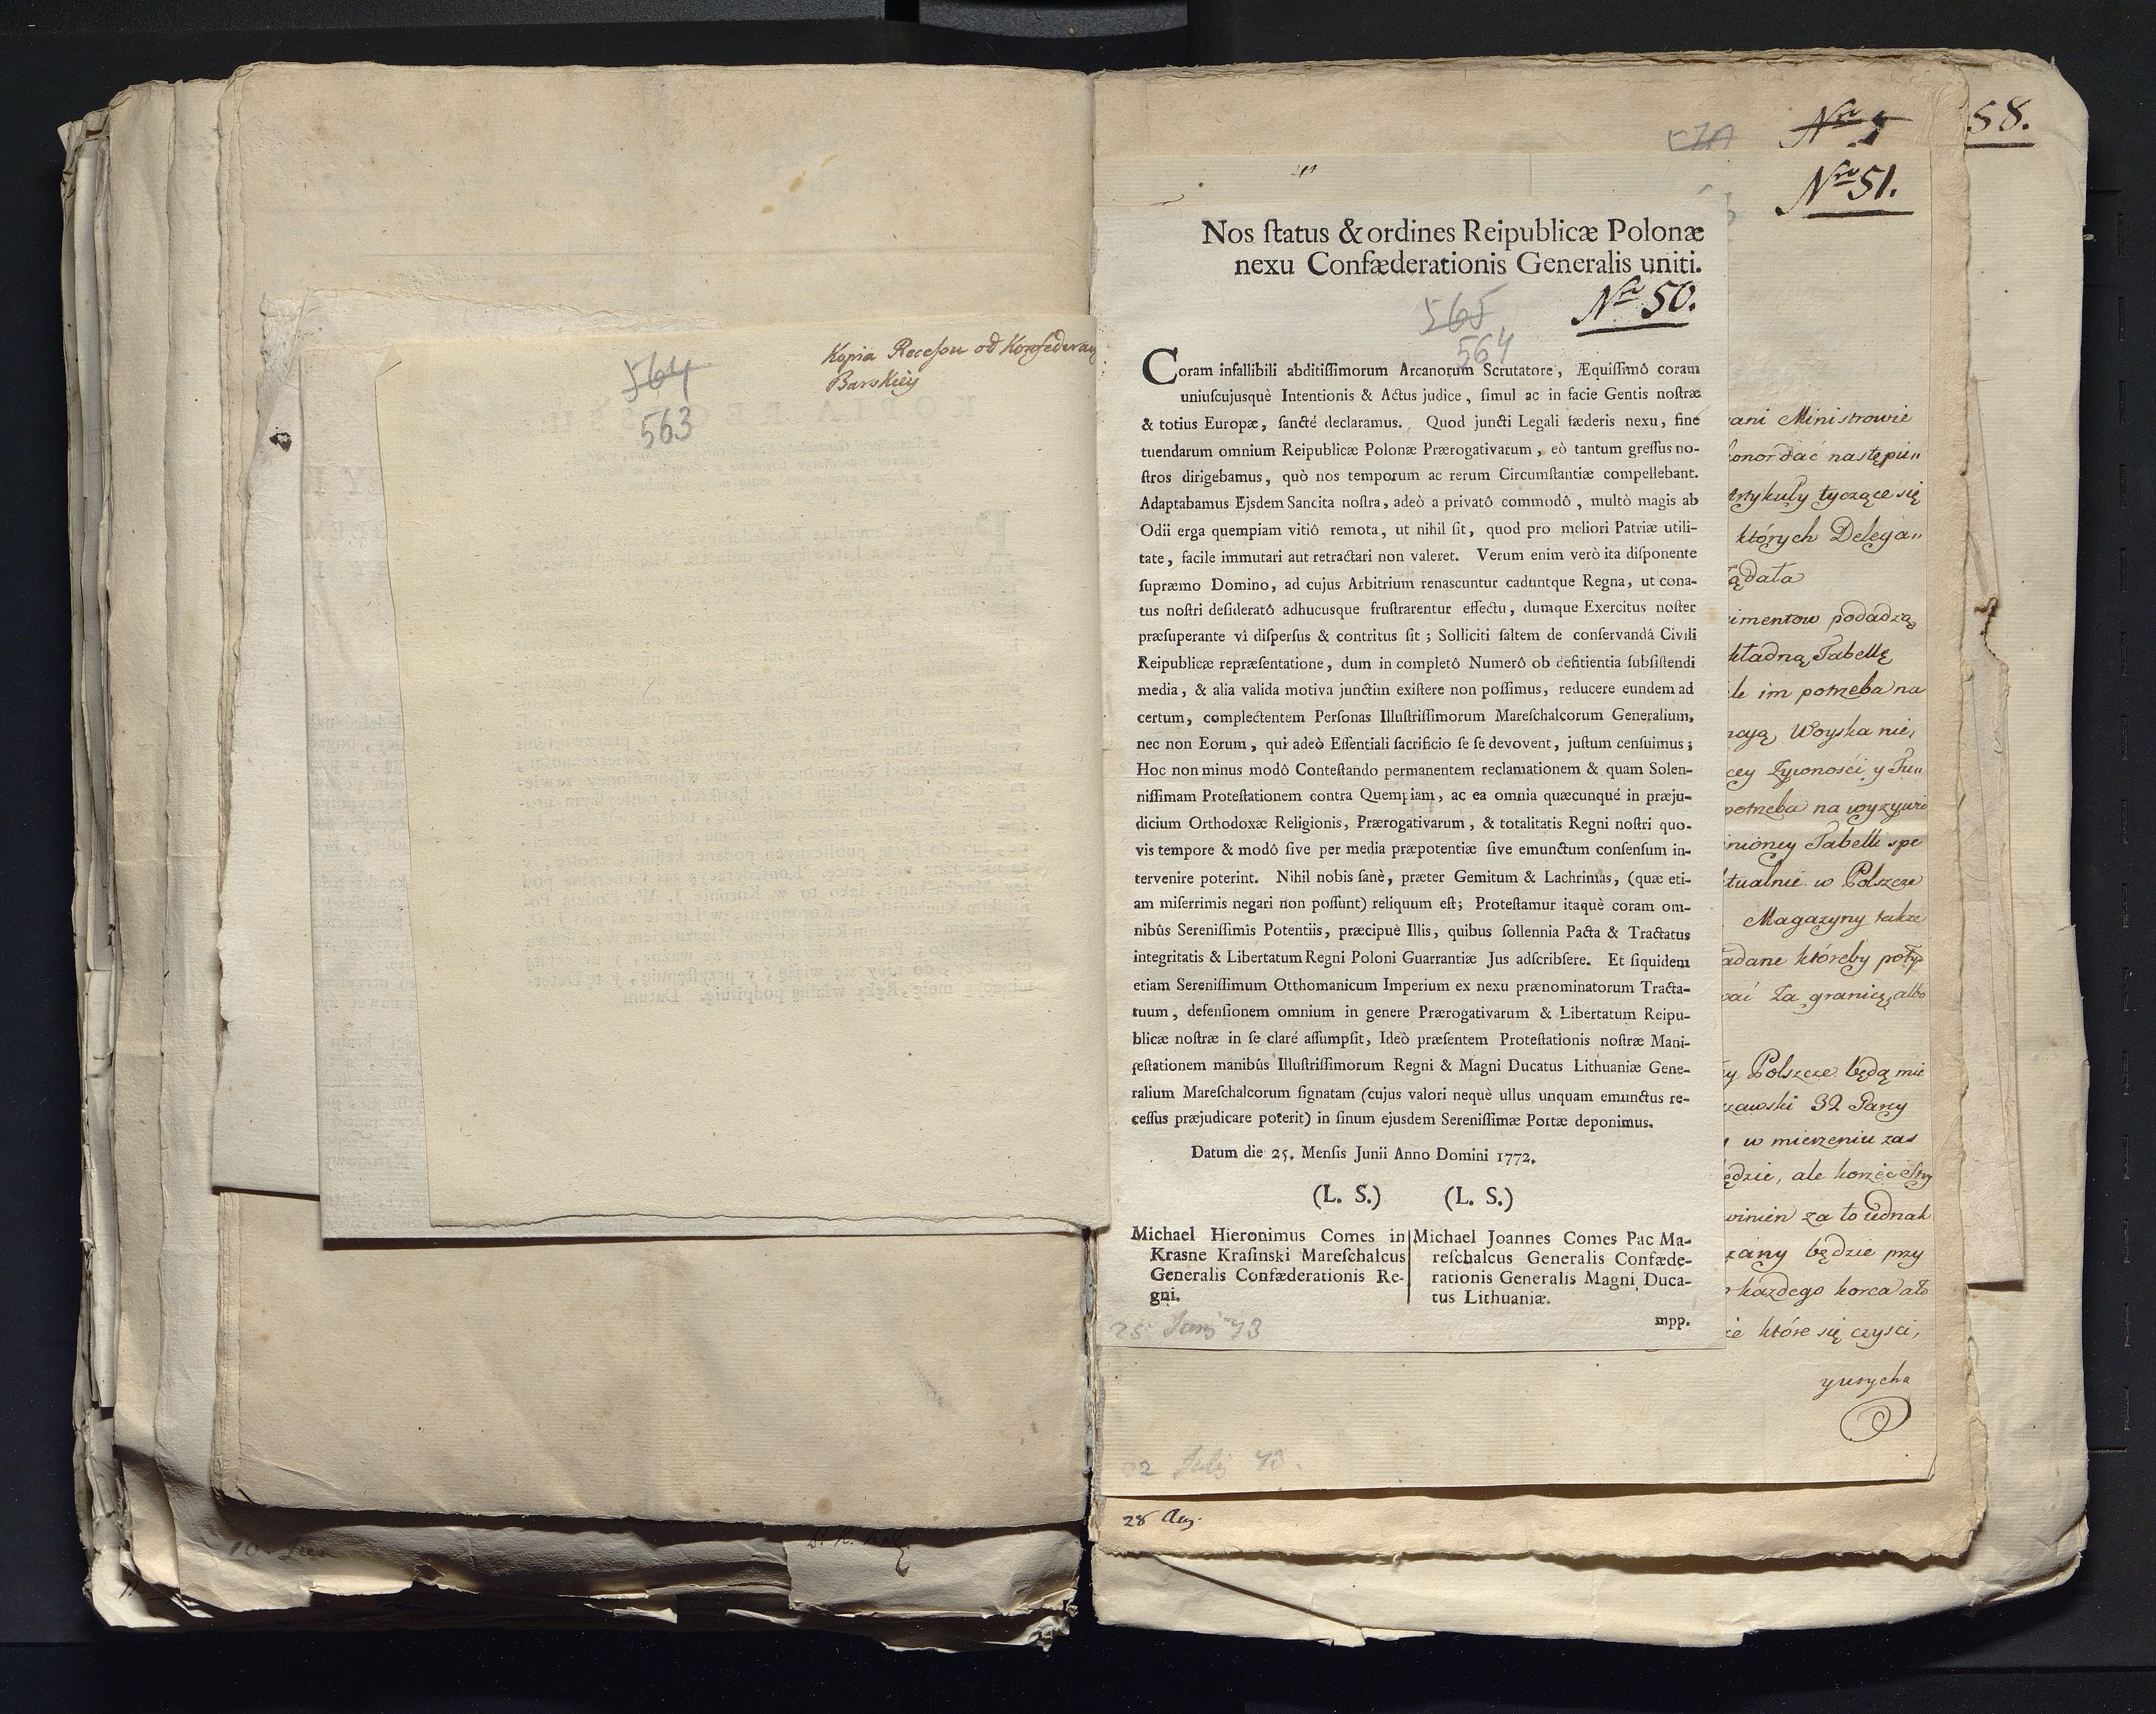 564
563
Kopia Recessu od Konfederacy
Barskiey
58.
Nro 51.
Nos ſtatus & ordines Reipublicæ Polonæ
nexu Confæderationis Generalis uniti.
Nro 50.
565
564
Coram infallibili abditiſſimorum Arcanorum Scrutatore, Æquiſſimô coram
uniuſcujusquè Intentionis & Actus judice, ſimul ac in facie Gentis noſtræ
& totius Europæ, ſancté declaramus. Quod juncti Legali fæderis nexu, finé
tuendarum omnium Reipublicæ Polonæ Prærogativarum, eò tantum greſſus no-
ſtros dirigebamus, quò nos temporum ac rerum Circumſtantiæ compellebant.
Adaptabamus Ejsdem Sancita noſtra, adeò a privatô commodô, multò magis ab
Odii erga quempiam vitiô remota, ut nihil ſit, quod pro meliori Patriæ utili-
tate, facile immutari aut retractari non valeret. Verum enim verò ita diſponente
ſupræmo Domino, ad cujus Arbitrium renascuntur caduntque Regna, ut cona-
tus noſtri deſideratô adhucusque fruſtrarentur effectu, dumque Exercitus noſter
præſuperante vî diſperſus & contritus ſit; Solliciti ſaltem de conſervandâ Civili
Reipublicæ repræſentatione, dum in completô Numerô ob defitientia ſubſiſtendi
media, & alia valida motiva junctim exiſtere non poſſimus, reducere eundem ad
certum, complectentem Perſonas Illuſtriſſimorum Mareſchalcorum Generalium,
nec non Eorum, qui adeò Eſſentiali ſacrificio ſe ſe devovent, juſtum cenſuimus;
Hoc non minus modô Conteſtando permanentem reclamationem & quam Solen-
niſſimam Proteſtationem contra Quempiam, ac ea omnia quæcunqué in præju-
dicium Orthodoxæ Religionis, Prærogativarum, & totalitatis Regni noſtri quo-
vis tempore & modô ſive per media præpotentiæ ſive emunctum conſenſum in-
tervenire poterint. Nihil nobis ſanè, præter Gemitum & Lachrimas, (quæ eti-
am miſerrimis negari non poſſunt) reliquum eſt; Proteſtamur itaquè coram om-
nibûs Sereniſſimîs Potentiis, præcipuè Illis, quibus ſollennia Pacta & Tractatus
integritatis & Libertatum Regni Poloni Guarrantiæ Jus adſcribſere. Et ſiquidem
etiam Sereniſſimum Otthomanicum Imperium ex nexu prænominatorum Tracta-
tuum, defenſionem omnium in genere Prærogativarum & Libertatum Reipu-
blicæ noſtræ in ſe claré aſſumpſit, Ideò præſentem Proteſtationis noſtræ Mani-
feſtationem manibûs Illuſtriſſimorum Regni & Magni Ducatus Lithuaniæ Gene-
ralium Mareſchalcorum ſignatam (cujus valori nequè ullus unquam emunctus re-
ceſſus præjudicare poterit) in ſinum ejusdem Sereniſſimæ Portæ deponimus.
Datum die 25. Menſis Junii Anno Domini 1772.
(L. S.) (L. S.)
Michael Hieronimus Comes in
Krasne Kraſinski Mareſchalcus
Generalis Confæderationis Re-
gni.
Michael Joannes Comes Pac Ma-
reſchalcus Generalis Confæde-
rationis Generalis Magni Duca-
tus Lithuaniæ.
mpp.
ani Ministrowie
następu„
Artykuły tyczące się
których Delega„
ądała
imentow podadzą
kładną Tabellę
le im potrzeba na
Woyska nie„
cey Zywnosci y Fu„
potrzeba na wyzywie
nioney Tabelli spe
tualnie w Polszcze
Magazyny takze
adane któreby
za granicę, albo
y Polszcze będą mie
zawski 32 Garcy
w mierzeniu zas
ędzie, ale korzec
winien za to iednak
zany będzie przy
kazdego korca
ie które się czysci,
25 Junij 73
02 Julij 73.
28 Aug.